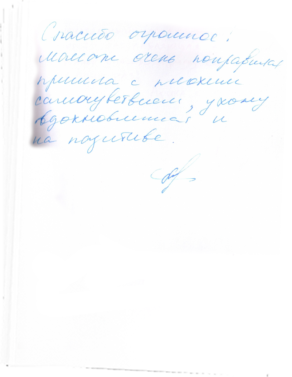 Спасибо огромное.
Массаж очень понравился
пришла с плохим
самочувствием, ухожу
вдохновлённая и
на позитиве.